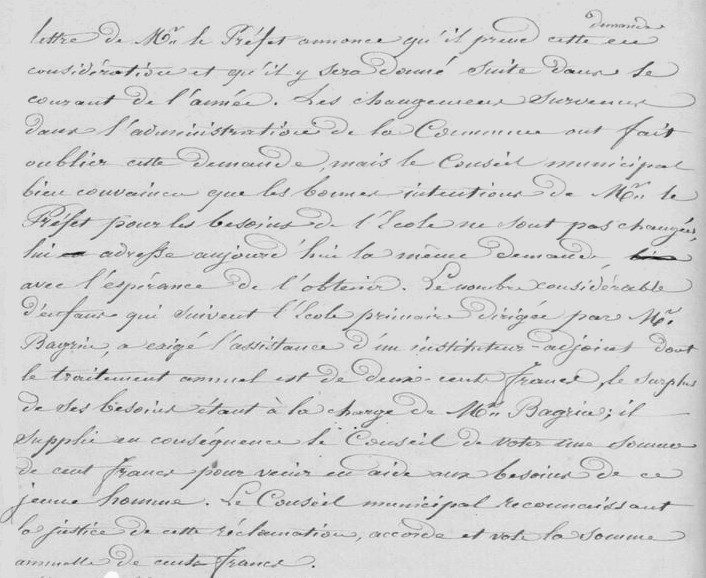 demande
lettre de Mr. le Préfet annonce qu'il prend cette en
considération et qu'il y sera donné suite dans le
courant de l'année. Les changemens survenus
dans l'administration de la Commune ont fait
oublier cette demande, mais le Conseil municipal
bien convaincu que les bonnes intentions de Mr. le
Préfet pour les besoins de l'Ecole ne sont pas changées,
lui adresse aujourd'hui la même demande
avec l'espérance de l'obtenir. Le nombre considérable
d'enfans qui suivent l'Ecole primaire dirigée par Mr.
Bagrie, a exigé l'assistance d'un instituteur-adjoint dont
le traitement annuel est de deux-cents francs, le surplus
de ses besoins étant à la charge de Mr. Bagrie; il
supplie en conséquence le Conseil de voter une somme
de cent francs pour venir en aide aux besoins de ce
jeune homme. Le Conseil municipal reconnaissant
la justice de cette réclamation, accorde et vote la somme
annuelle de cent francs.